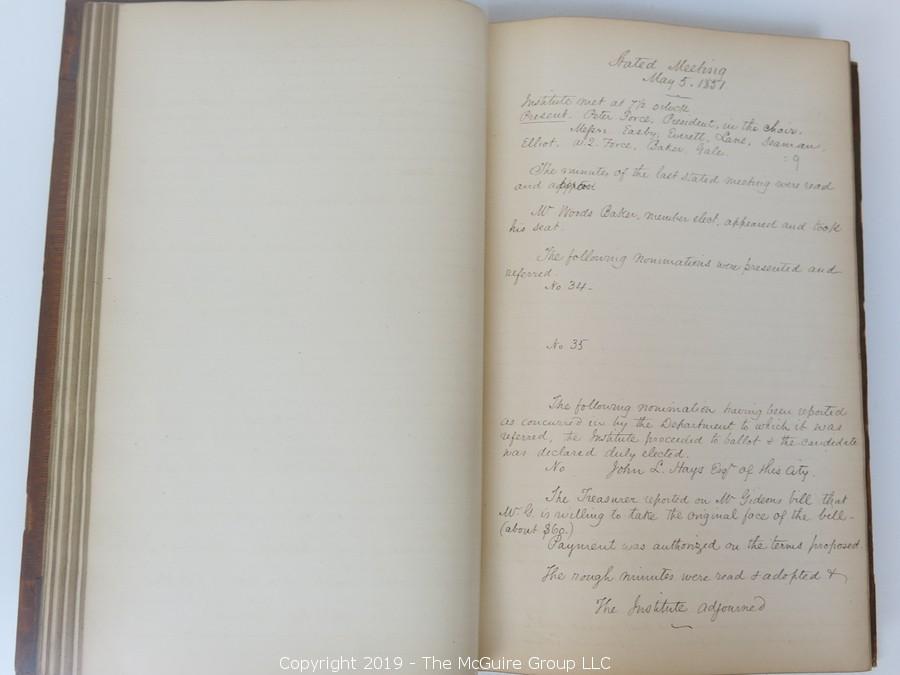 Stated Meeting
May 5. 1851
Institute met at 7½ o'clock
Present. Peter Force, President, in the chair.
Messrs Easby, Everett, Lane, Seaman,
Elliot. W.Q. Force, Baker, Gale. : 9
The minutes of the last stated meeting were read
and
Mr Woods Baker, member elect, appeared and took
his seat.
The following nominations were presented and
referred.
No 34-
No 35
The following nomination having been reported
as concurred in by the Department to which it was
referred, the Institute proceeded to ballot & the candidate
was declared duly elected.
No John L. Hays Esqr of this City.
The Treasurer reported on Mr Gideons bill that
Mr G. is willing to take the original face of the bill -
(about $60.)
Payment was authorized on the terms proposed.
The rough minutes were read & adopted &
The Institute adjourned
Copyright 2019 - The McGuire Group LLC